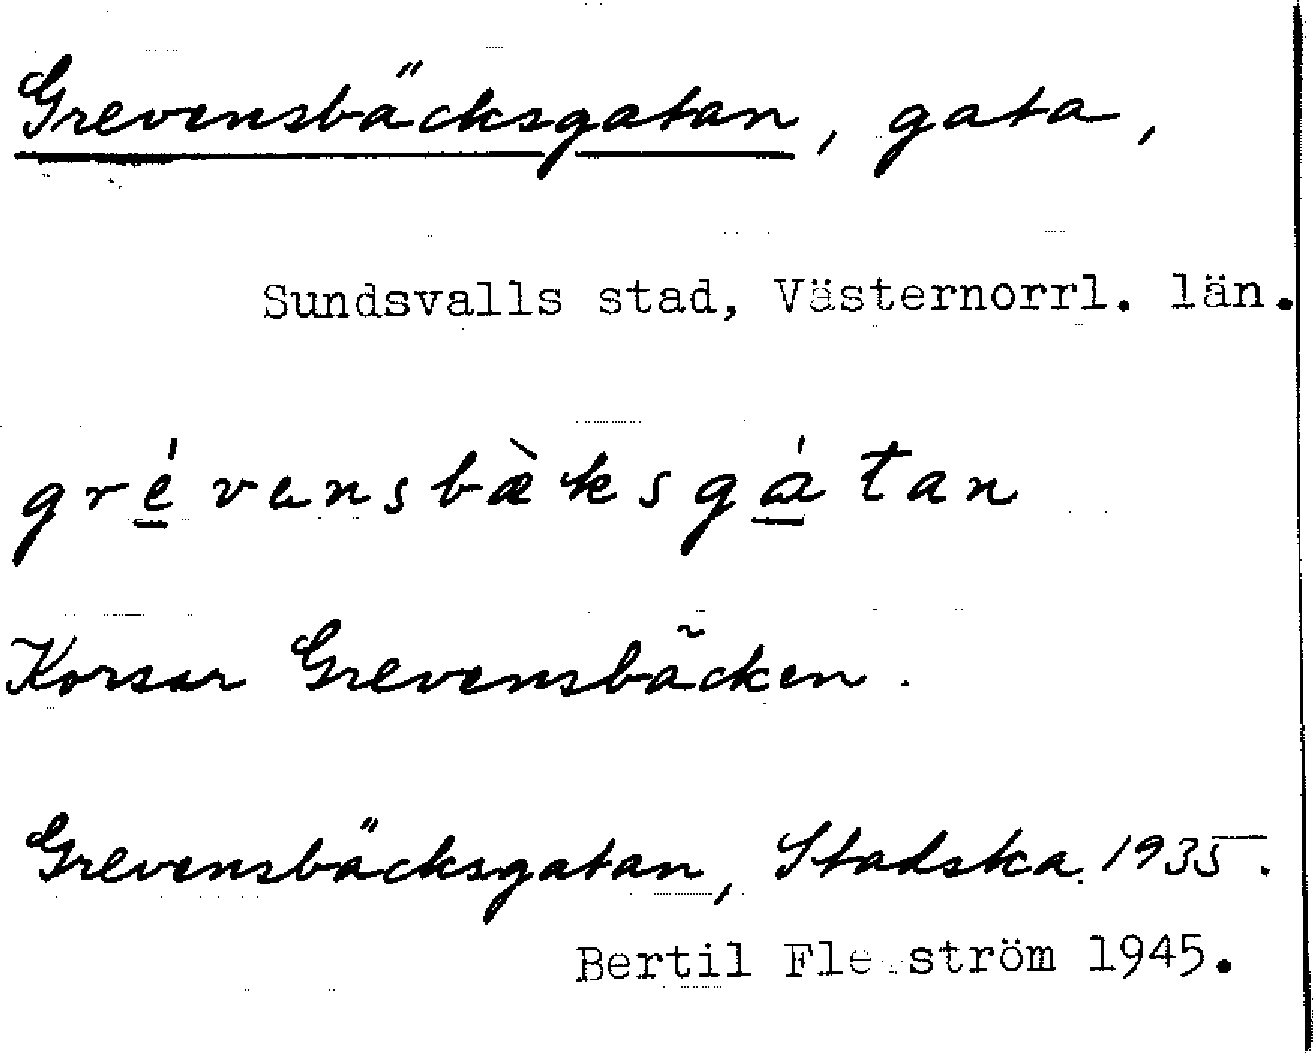 Grevensbäcksgatan, gata,
Sundsvalls stad, Västernorrl. län.
gré̲vensbæ̀ksgá̲tan
Korsar Grevensbäcken.
Grevensbäcksgatan, Stadska. 1935.
Bertil 1945.